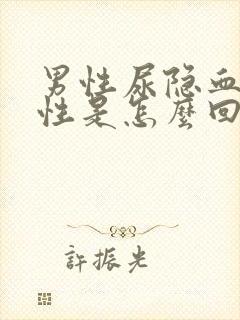 男性尿隐血
性是怎麽回
許振光